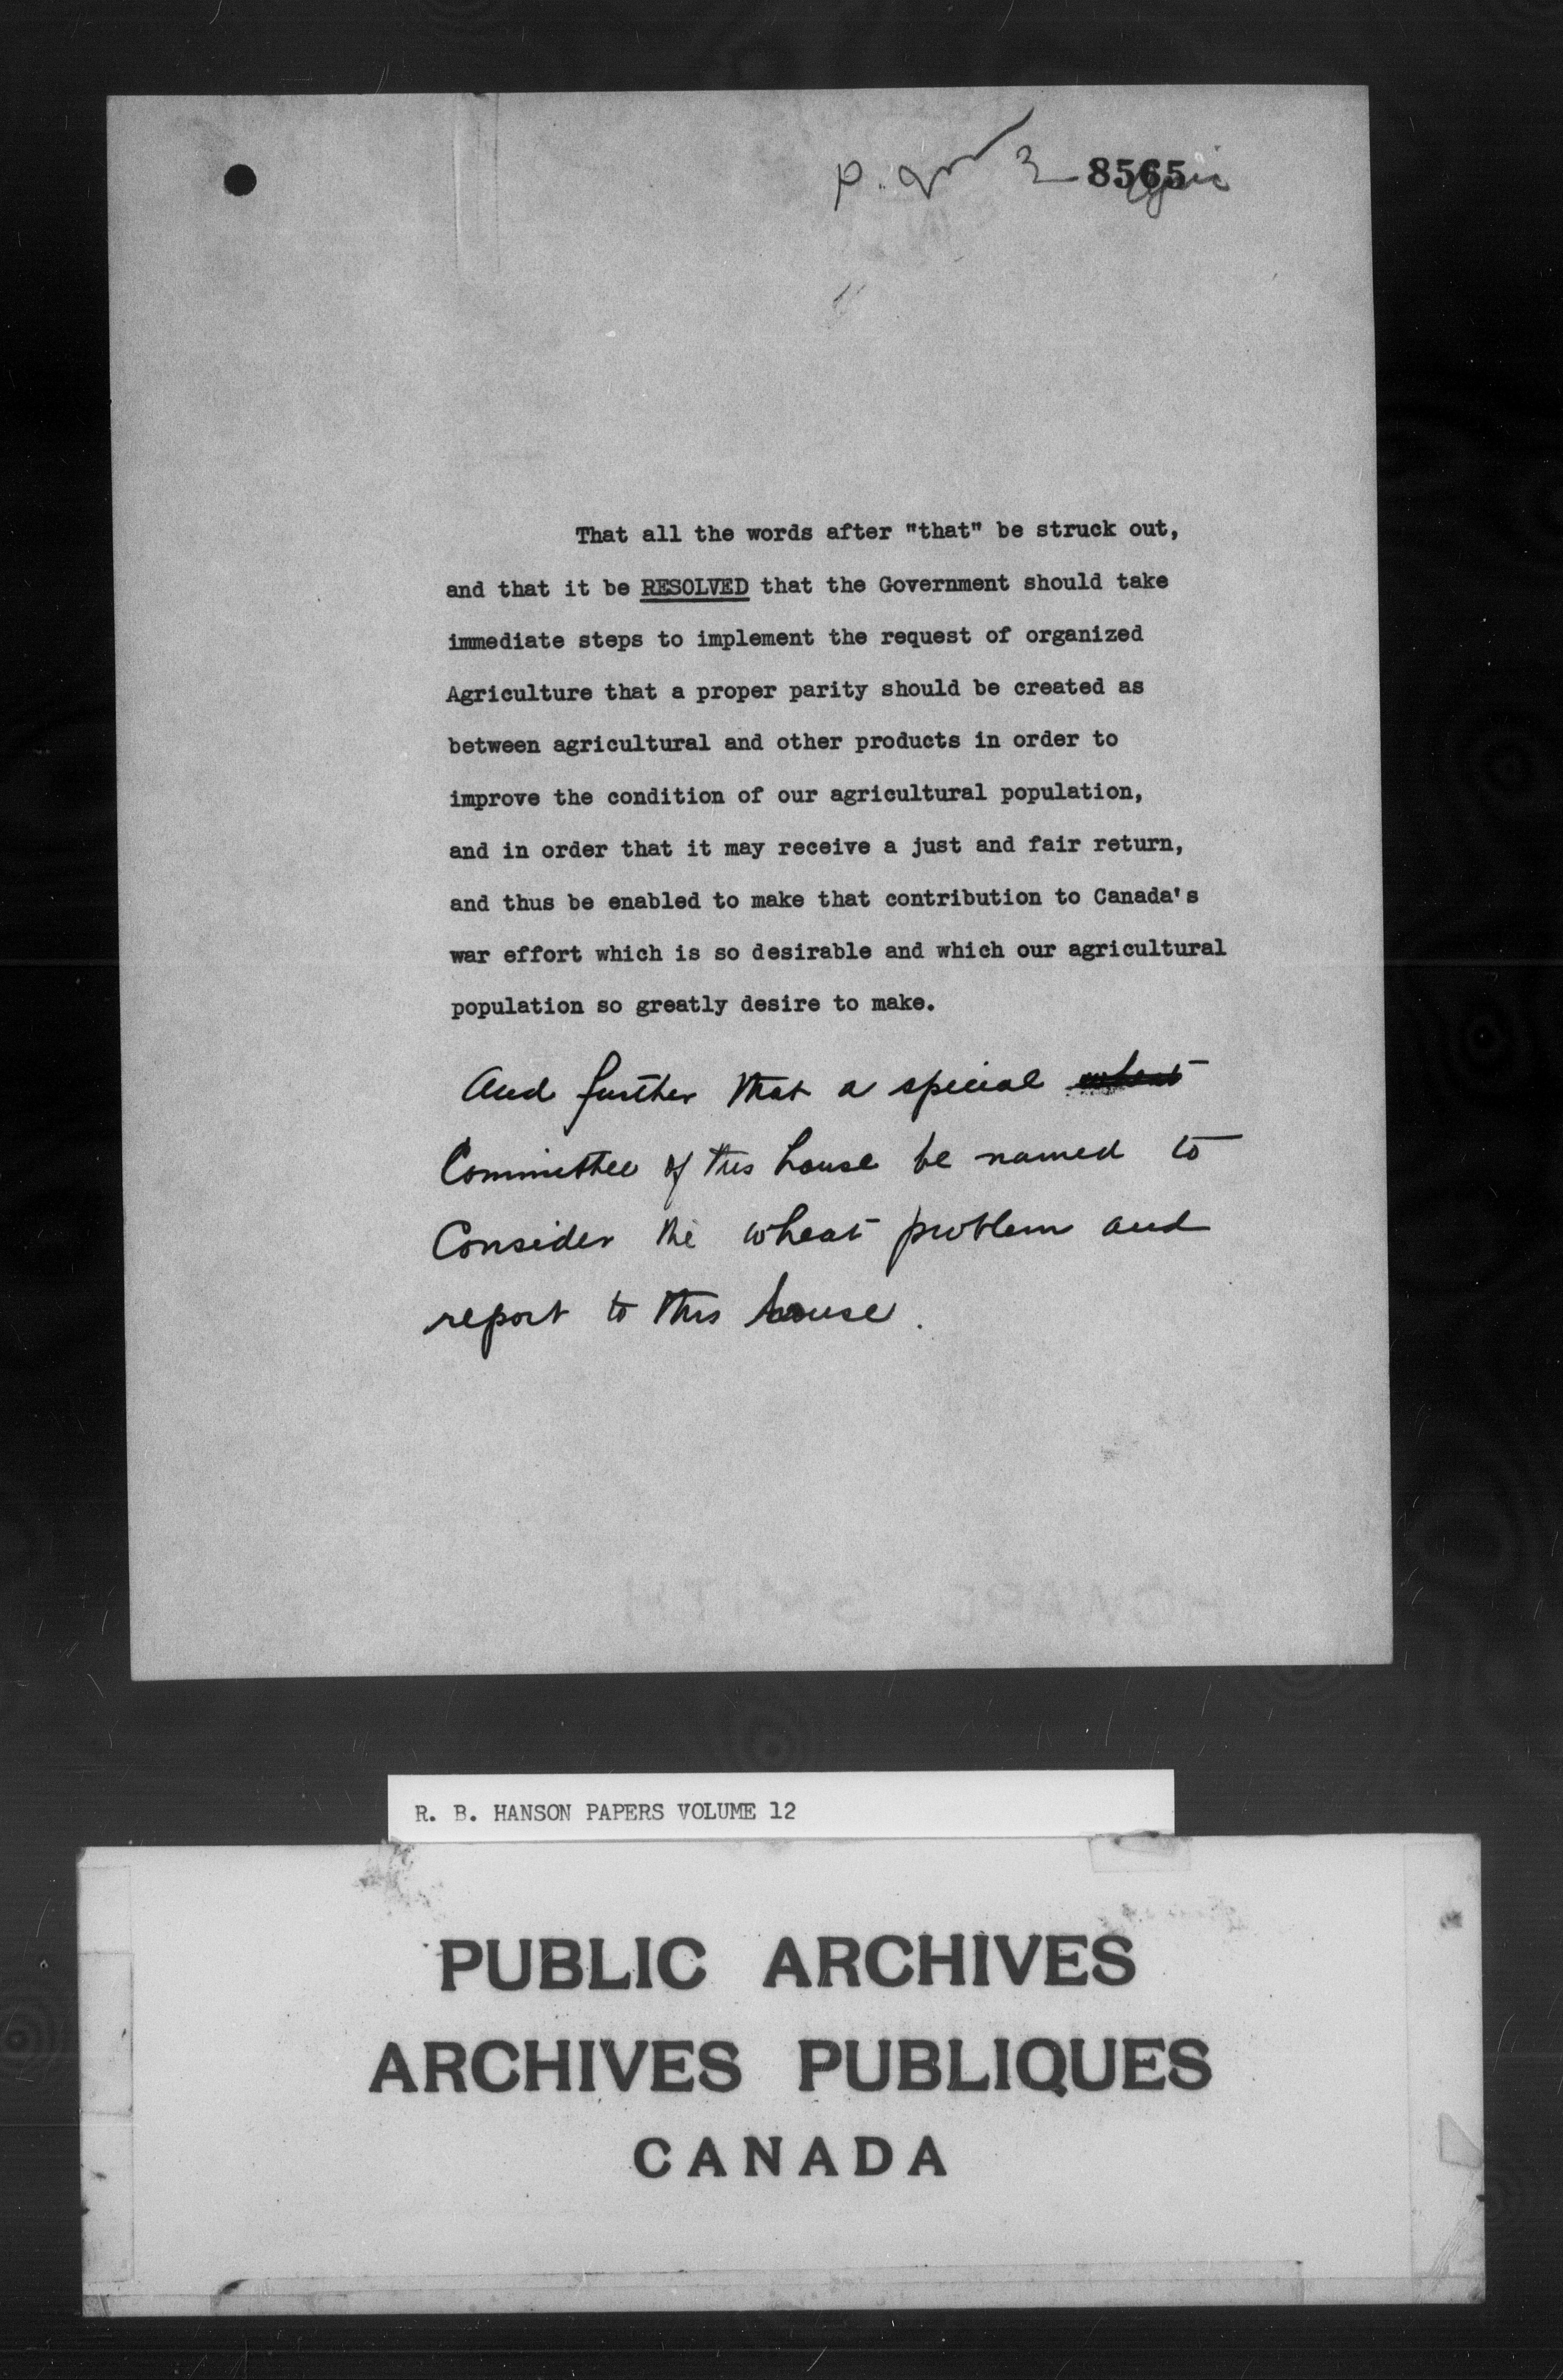 8565
That all the words after "that" be struck out,
and that it be RESOLVED that the Government should take
immediate steps to implement the request of organized
Agriculture that a proper parity should be created as
between agricultural and other products in order to
improve the condition of our agricultural population,
and in order that it may receive a just and fair return,
and thus be enabled to make that contribution to Canada's
war effort which is so desirable and which our agricultural
population so greatly desire to make.
And further that a special wheat
Committee of this house be named to
Consider the wheat problem and
report to this house.
HOWARD SMITH
R. B. HANSON PAPERS VOLUME 12
PUBLIC ARCHIVES
ARCHIVES PUBLIQUES
CANADA